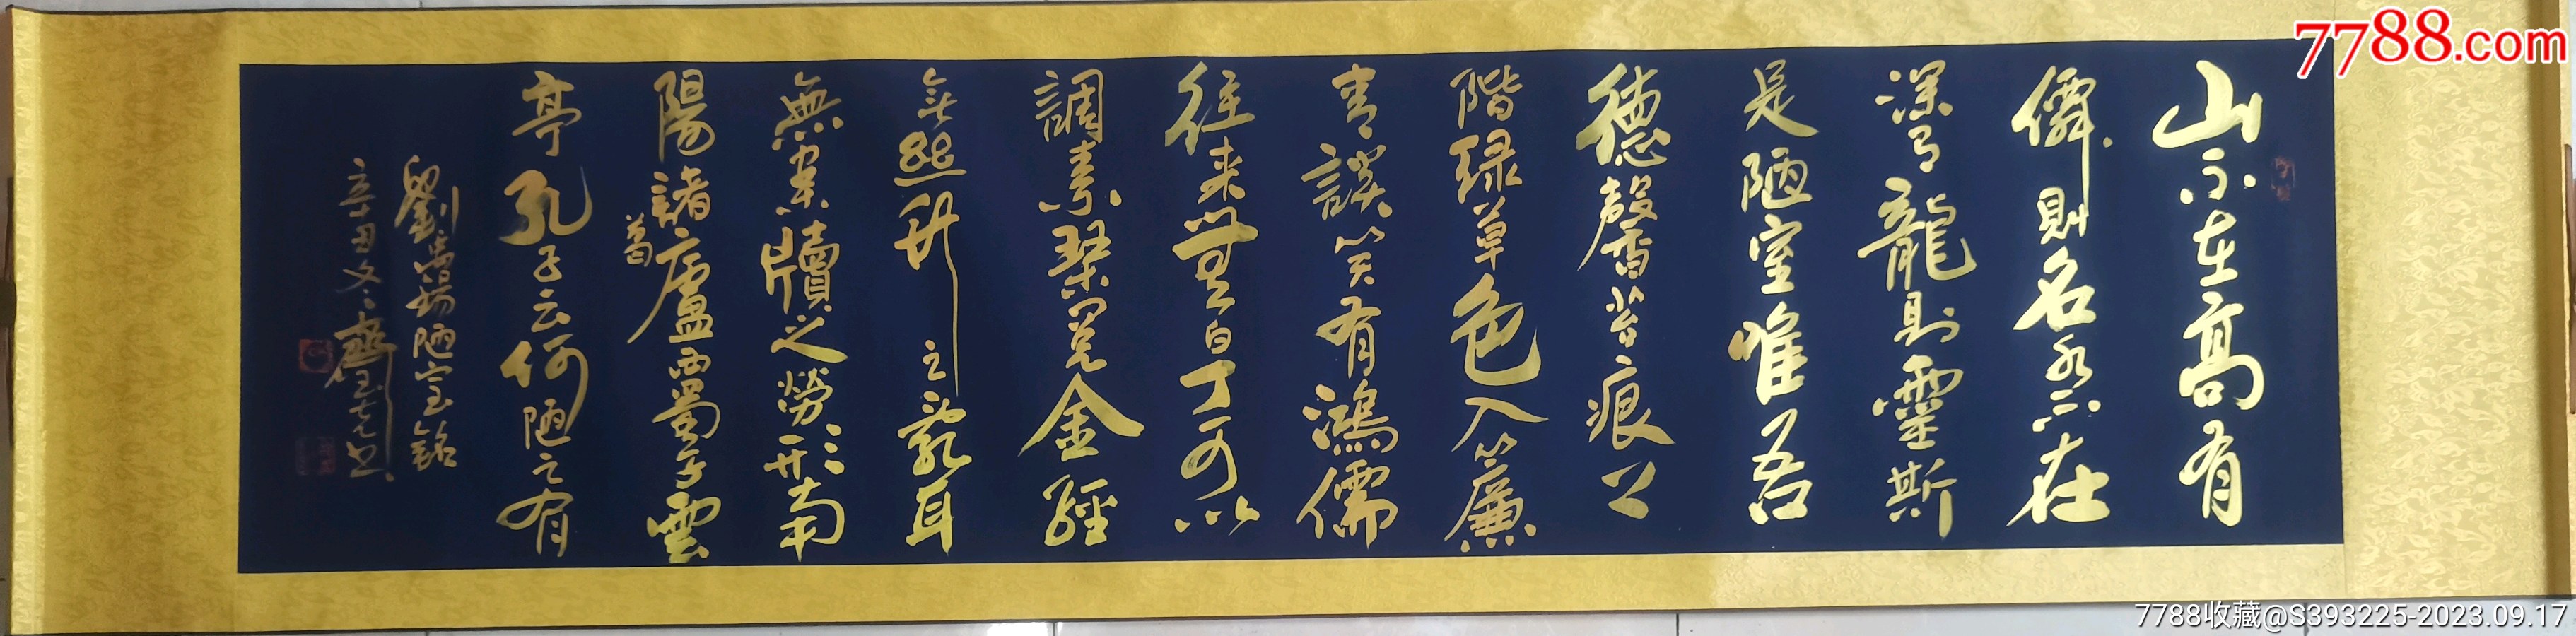 山不在高有
僊則名水不在
深有龍則靈斯
是陋室唯吾
德馨苔痕上
階緑草色入簾
青談笑有鴻儒
往來無白丁可以
調素琴閱金經
無絲竹之亂耳
無案牘之勞形南
陽諸葛廬西蜀子雲
亭孔子云何陋之有
劉禹錫陋室銘
7788.com
7788收藏@S393225-2023.09.17